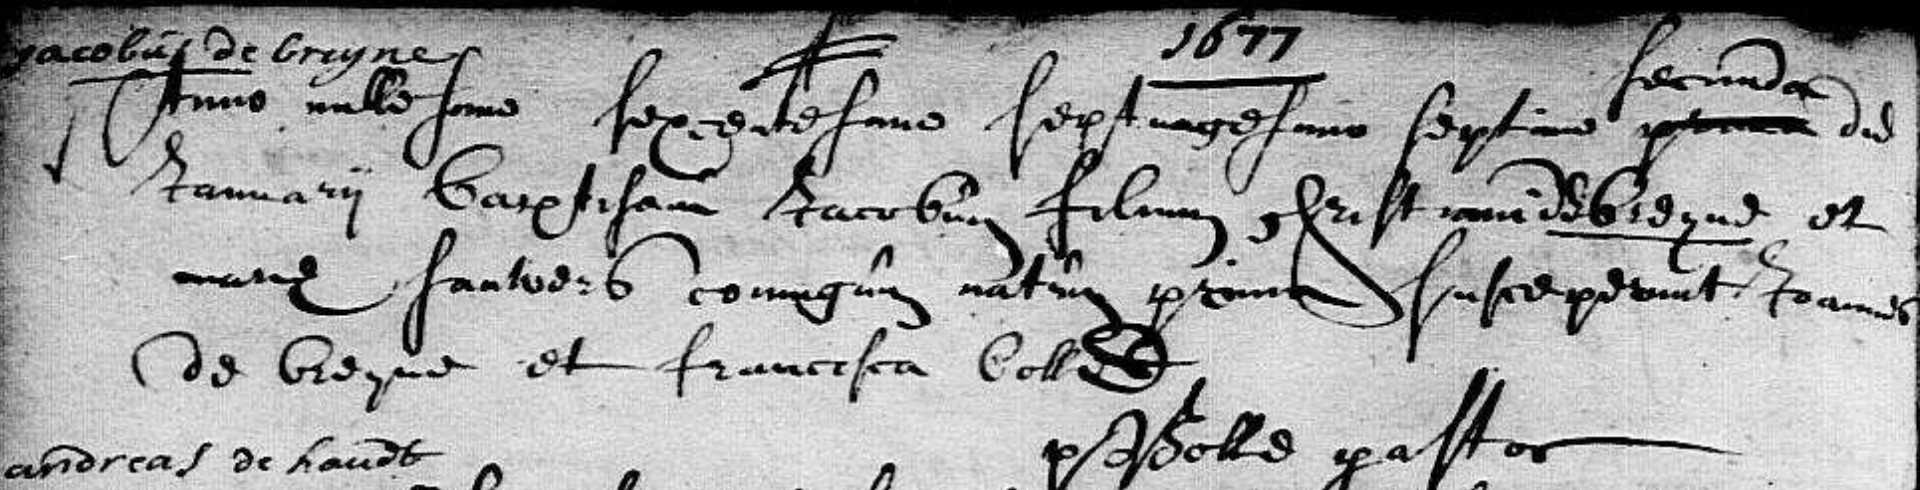 1677
jacobus de breyne
Anno millesimo sexcentesimo septuagesimo septimo secunda die
Januarij baptisavi Jacobum filium christiani de breyne et
mariæ sauwers coniugum natum pridie susceperunt Joannes
de breyne et francisca bolle
pastor
andreas de haudt